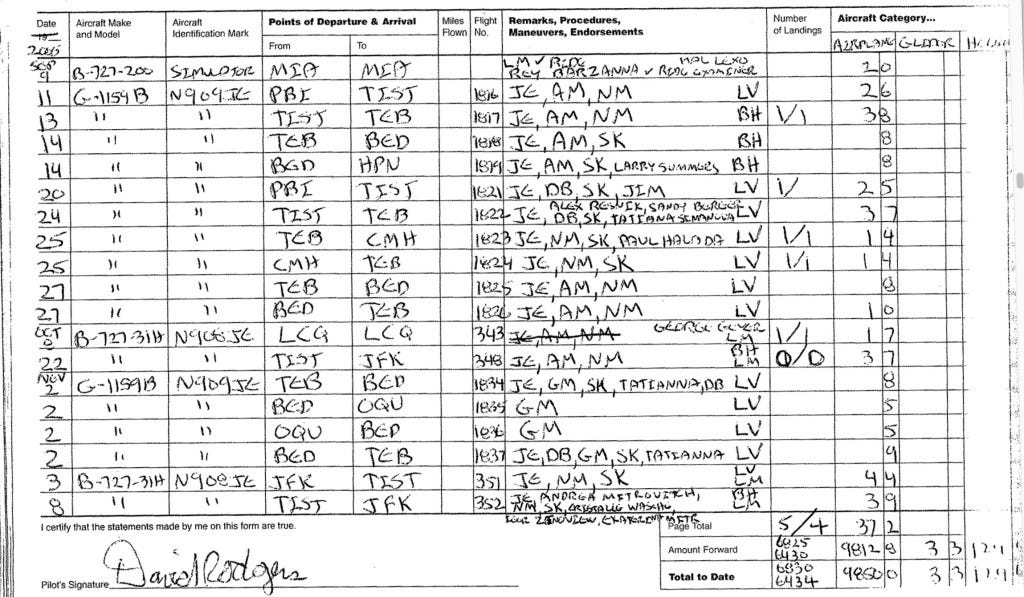 Date Aircraft Make and Model Aircraft Identification Mark Points of Departure & Arrival From To Miles Flown Flight No. Remarks, Procedures, Maneuvers, Endorsements Number of Landings Aircraft Category... AIRPLANE GLIDER
2005
LM √ RIDE
SEP 9 B-727-200 SIMULATOR MIA MIA REY BARZANNA √ RIDE EXAMINER 20
11 G-1159B N909JE PBI TIST 1816 JE, AM, NM LV 26
13 " " TIST TEB 1817 JE, AM, NM BH 1/1 38
14 " " TEB BED 1818 JE, AM, SK BH 8
14 " " BED HPN 1819 JE, AM, SK, LARRY SUMMERS, BH 8
20 " " PBI TIST 1821 JE, DB, SK, JIM LV 1/ 25
ALEX RESNIK, SANDY BERGER
24 " " TIST TEB 1822 JE, DB, SK, TATIANA LV 37
25 " " TEB CMH 1823 JE, NM, SK, PAUL HALADA LV 1/1 14
25 " " CMH TEB 1824 JE, NM, SK LV 1/1 14
27 " " TEB BED 1825 JE, AM, NM LV 8
27 " " BED TEB 1826 JE, AM, NM LV 10
OCT 8 B-727-31H N908JE LCQ LCQ 343 JE, AM, NM GEORGE LM 1/1 17
22 " " TIST JFK 348 JE, AM, NM BH LM 0/0 37
NOV 2 G-1159B N909JE TEB BED 1834 JE, GM, SK, TATIANNA, DB LV 8
2 " " BED OQU 1835 GM LV 5
2 " " OQU BED 1836 GM LV 5
2 " " BED TEB 1837 JE, DB, GM, SK, TATIANNA LV 9
3 B-727-31H N908JE JFK TIST 351 JE, NM, SK LV LM 44
8 " " TIST JFK 352 JE, ANDREA METROVITCH, BH LM 39
NM, SK,
I certify that the statements made by me on this form are true. Page Total 5/4 372
Amount Forward 6825 6430 9812 8 3 3
David Rodgers
Pilot's Signature Total to Date 6830 6434 9850 0 3 3